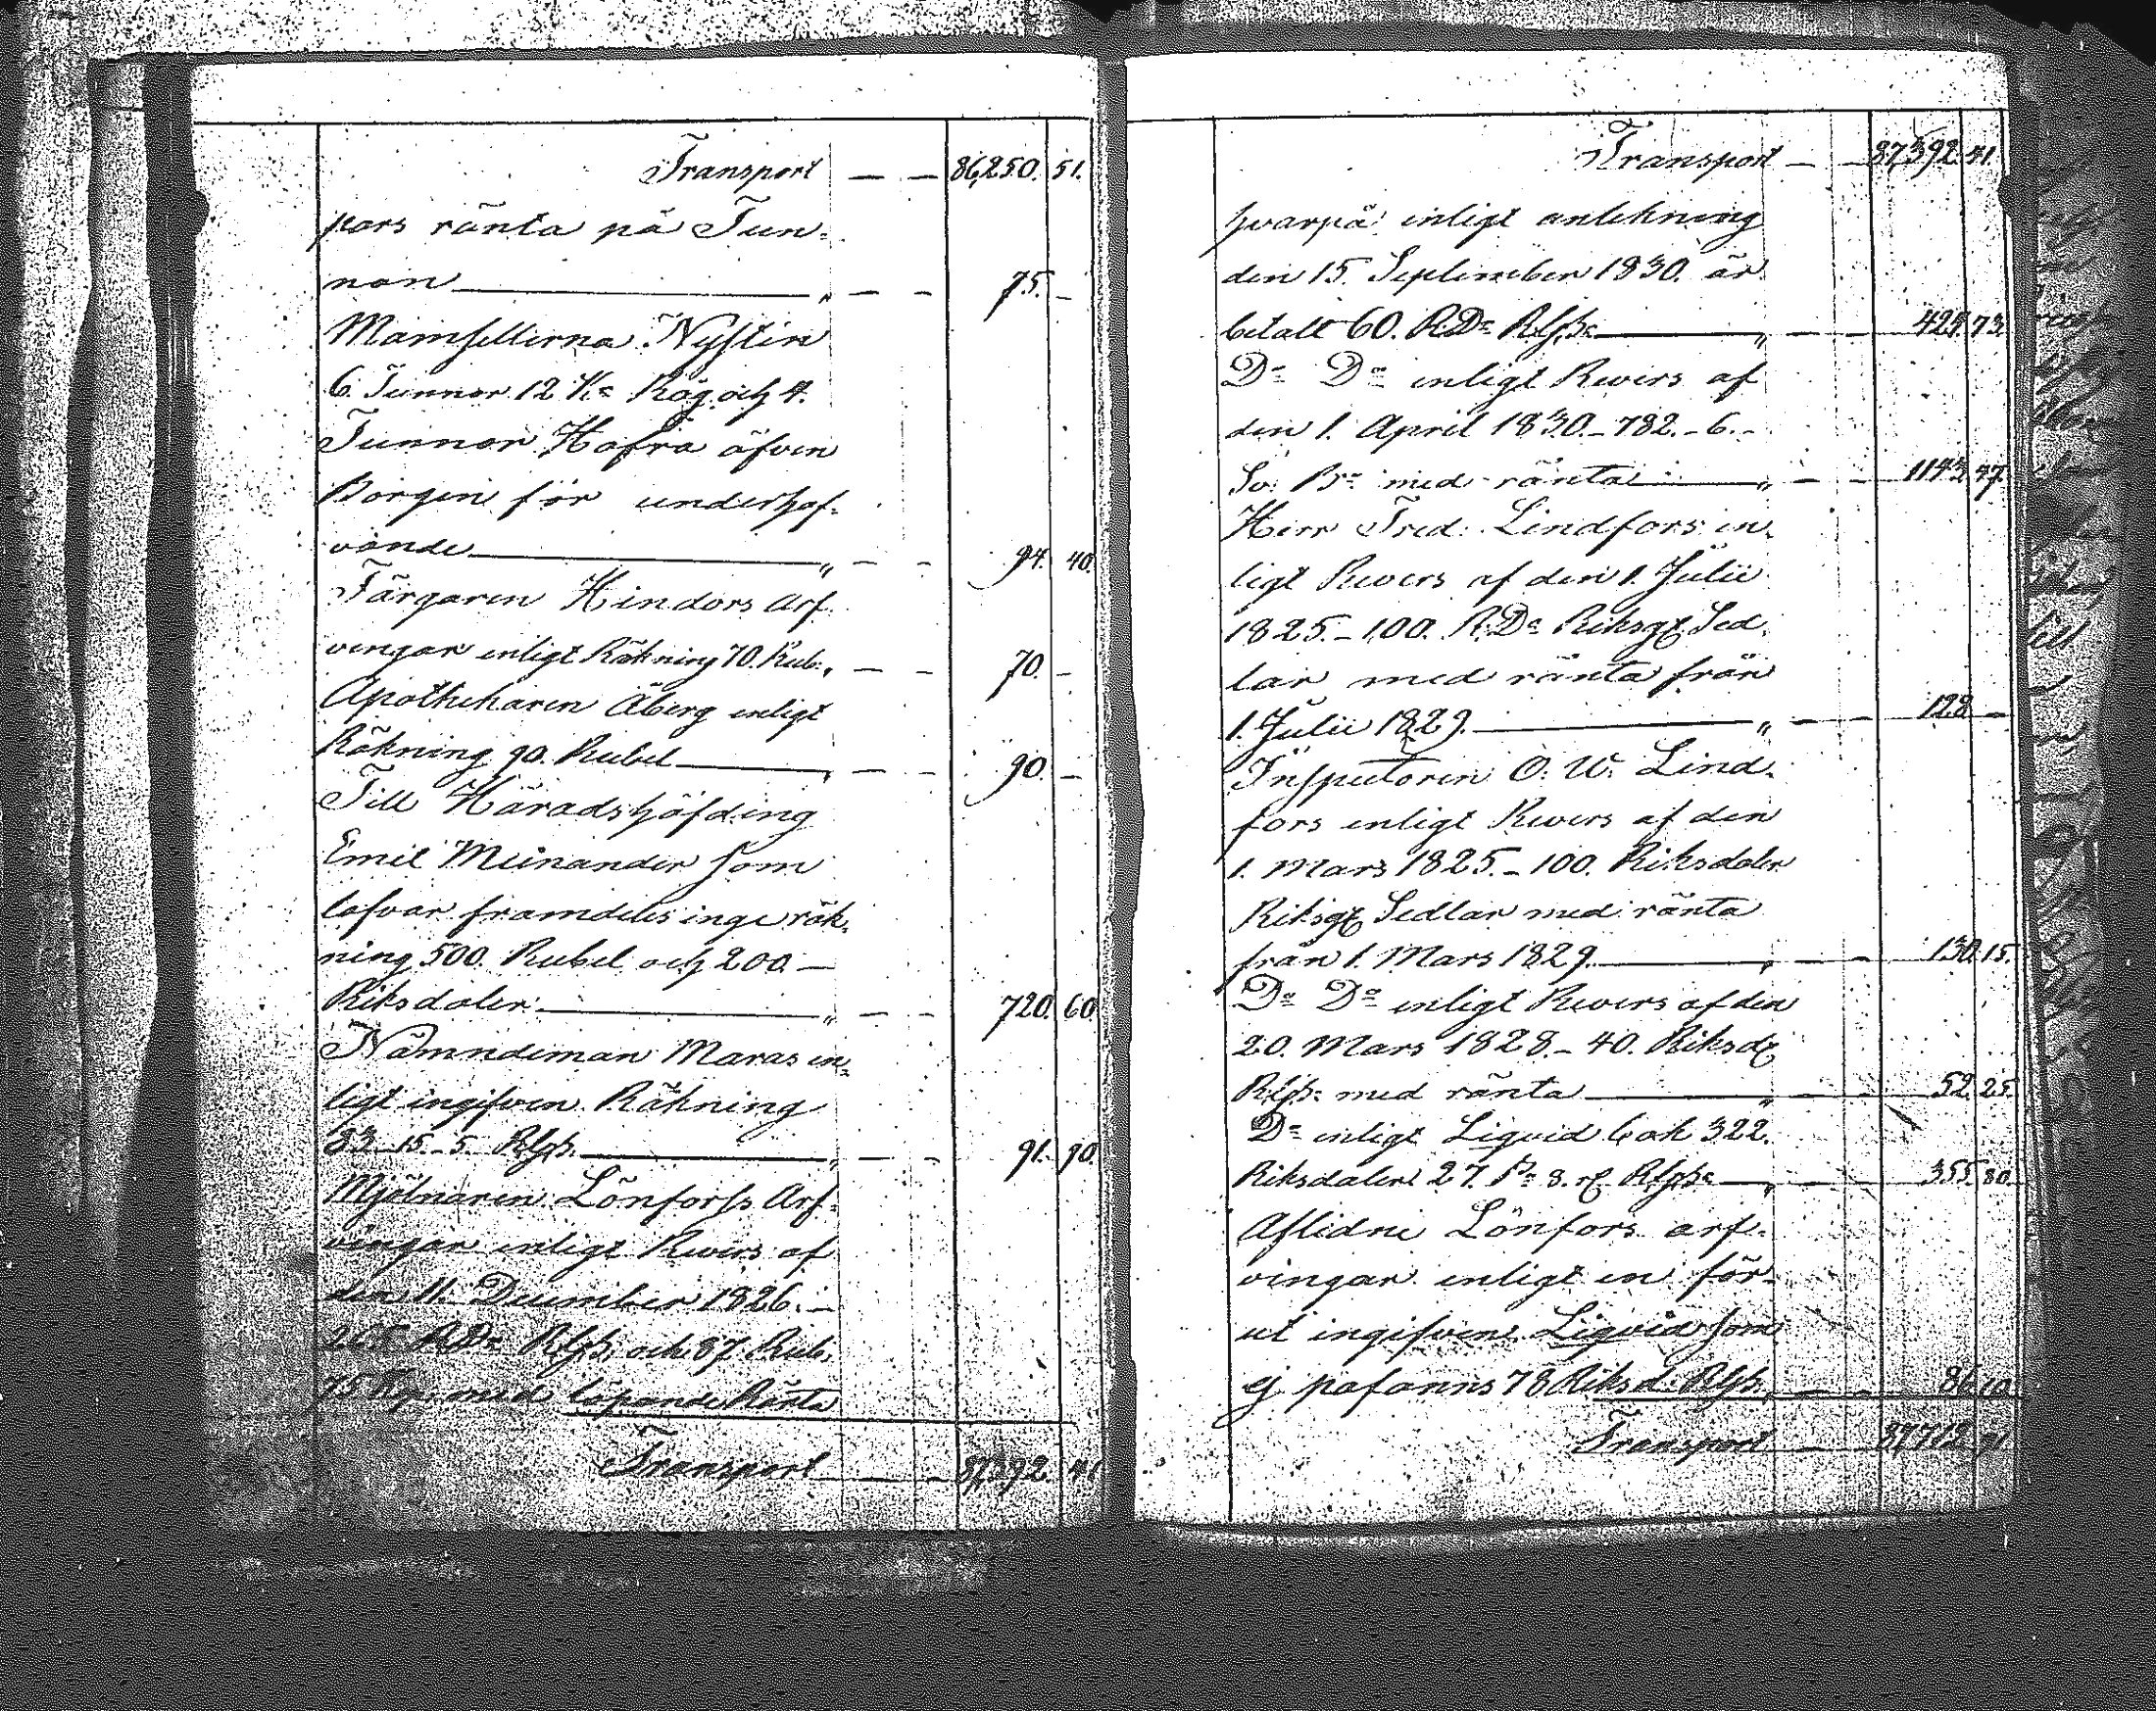 Transport — — 86,250. 51.
pars ränta på Tun-
nan — „ — — 75. —
Mamsellerna Nystén
6 Tunnor 12 Kr Råg och 4.
Tunnor Hafra äfven
Borgen för underhaf-
vande — „ — — 94. 40.
Färgaren Hindors Arf-
vingar enligt Räkning 70. Rub: „ — — 70. —
Apothekaren Åberg enligt
Räkning 90. Rubel — „ — — 90. —
Till Häradshöfding
Emil Meinander som
lofvar framdeles inge räk-
ning 500. Rubel och 200. —
Riksdaler — „ — — 720. 60
Nämndeman Maras en-
ligt ingifven Räkning
83. 15. 5. Rgs. — „ — — 91. 90.
Mjölnaren Lönforss Arf-
vingar enligt Revers af
den 11. December 1826. —
265 RDr Rgs. och 87 Rub.
75 Kop. med löpande Ränta
Transport — — 87,392. 41

Transport — — 87,392. 41.
hvarpå enligt antekning
den 15. September 1830. är
betalt 60. RDr Rgs. — „ — — 429. 73.
Do Do enligt Revers af
den 1. April 1830. — 782. - 6. -
So: Bo med ränta — „ — — 1143. 47.
Herr Fred: Lindfors en-
ligt Revers af den 1. Julii
1825. — 100. RDr Riksg Sed-
lar med ränta från
1. Julii 1829. — „ — — 128 —
Inspectoren O. W. Lind-
fors enligt Revers af den
1. Mars 1825. — 100. Riksdaler
Riksg Sedlar med ränta
från 1. Mars 1829. — „ — — 130. 15.
Do Do enligt Revers af den
20. Mars 1828. — 40. Riksd
Rgs. med ränta — „ — — 52. 25.
Do enligt Liqvid 322.
Riksdaler 27. s. 8. r Rgs. — „ — — 355. 80.
Aflidne Lönfors arf-
vingar enligt en för-
ut ingifven Liqvid som
ej påfanns 78 Riksd. Rgs. „ — — 86. 10.
Transport — — 87712. 91